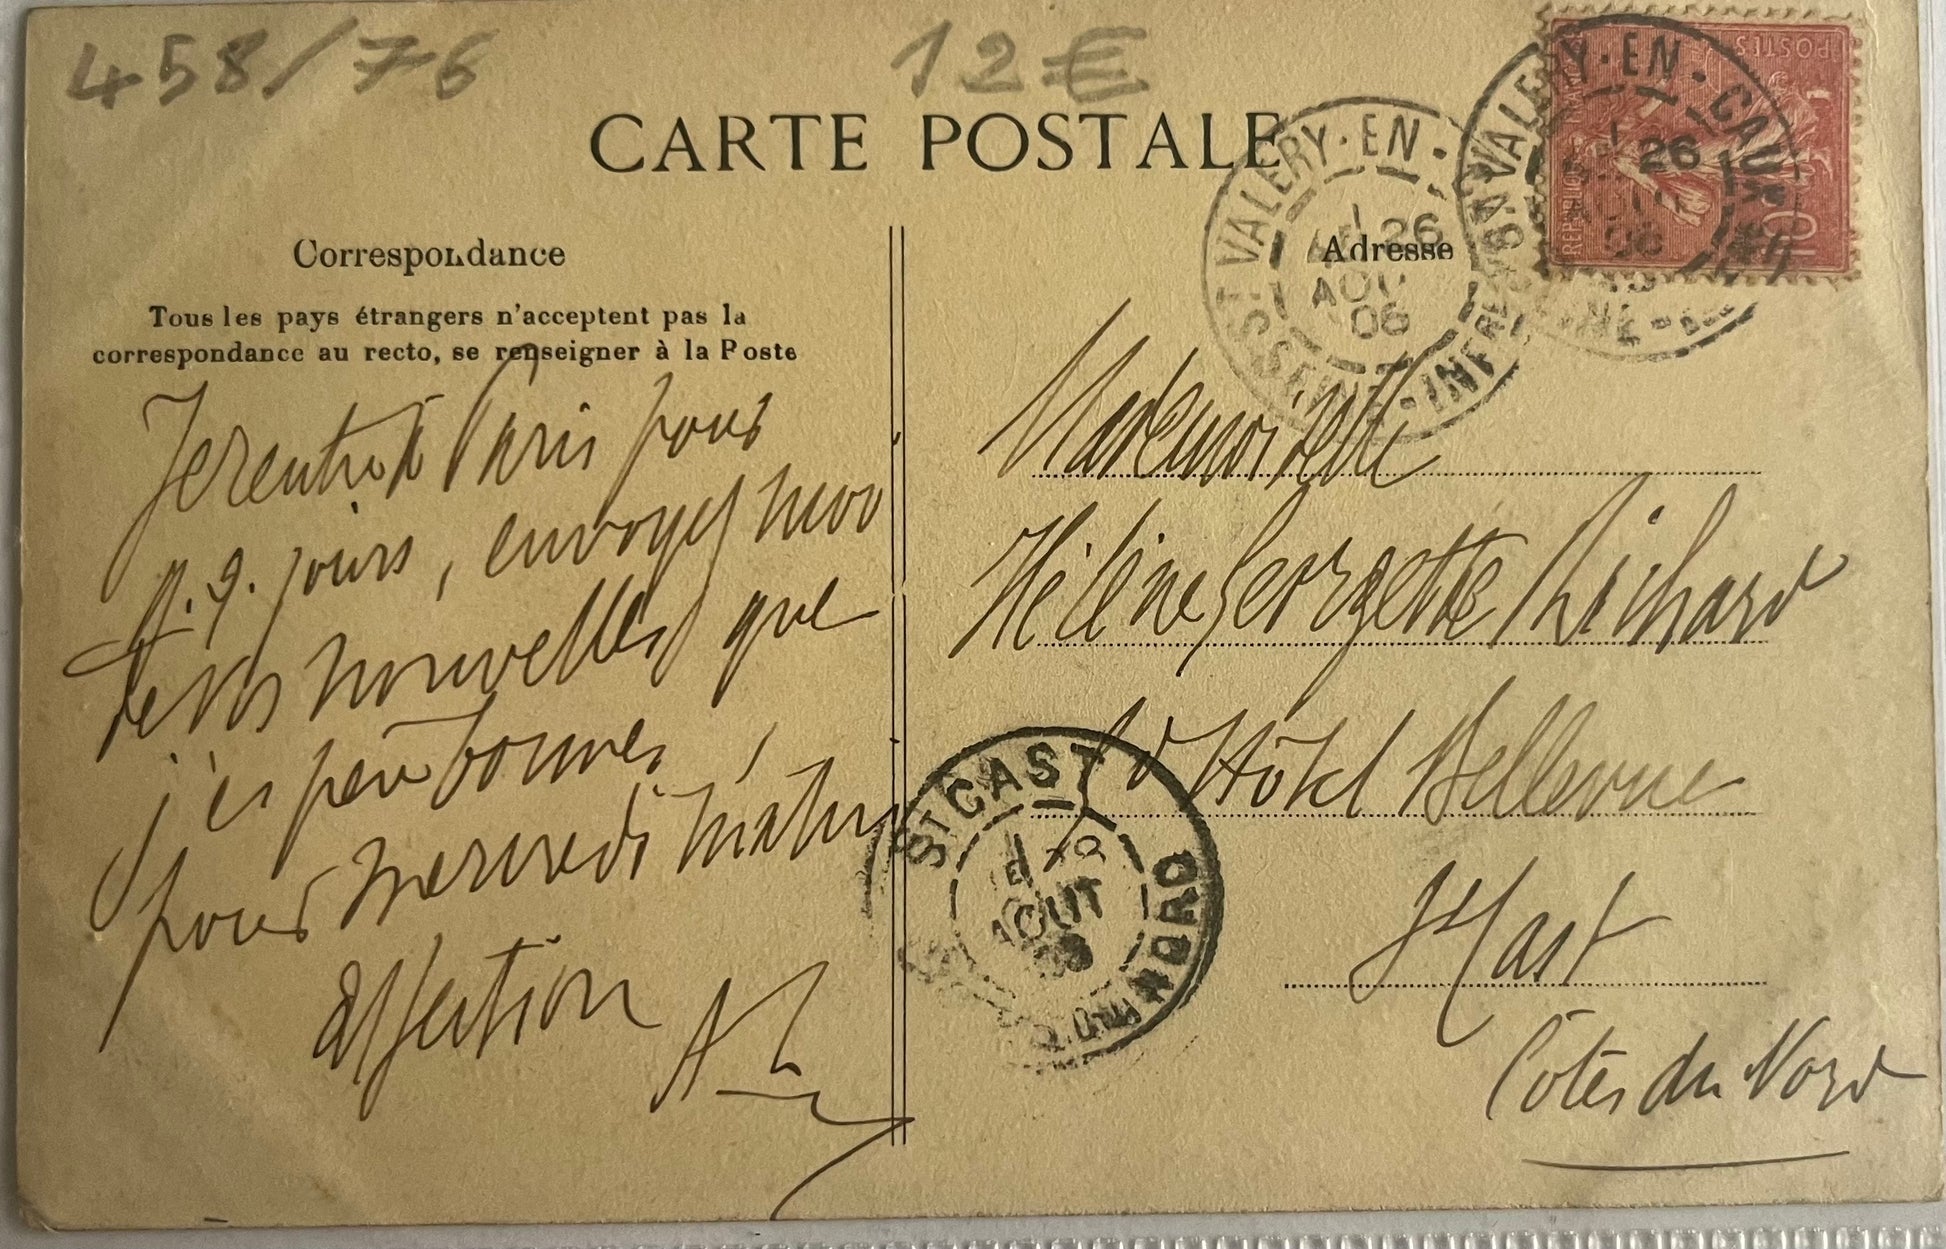 458/76
12€
CARTE POSTALE
Correspondance
Tous les pays étrangers n'acceptent pas la
correspondance au recto, se renseigner à la Poste
Je rentre à Paris pour
q.q. jours, envoyez moi
de vos nouvelles que
j'espère bonnes,
pour mercredi matin
affection
Adresse
Mademoiselle
Hélène Georgette Richard
Hôtel Bellevue
St Cast
Côtes du Nord
ST VALERY-EN-
SEINE-INFRE
26
AOU
06
ST VALERY-EN-CAUX
26
06
ST CAST
AOUT
DU NORD
POSTES
10